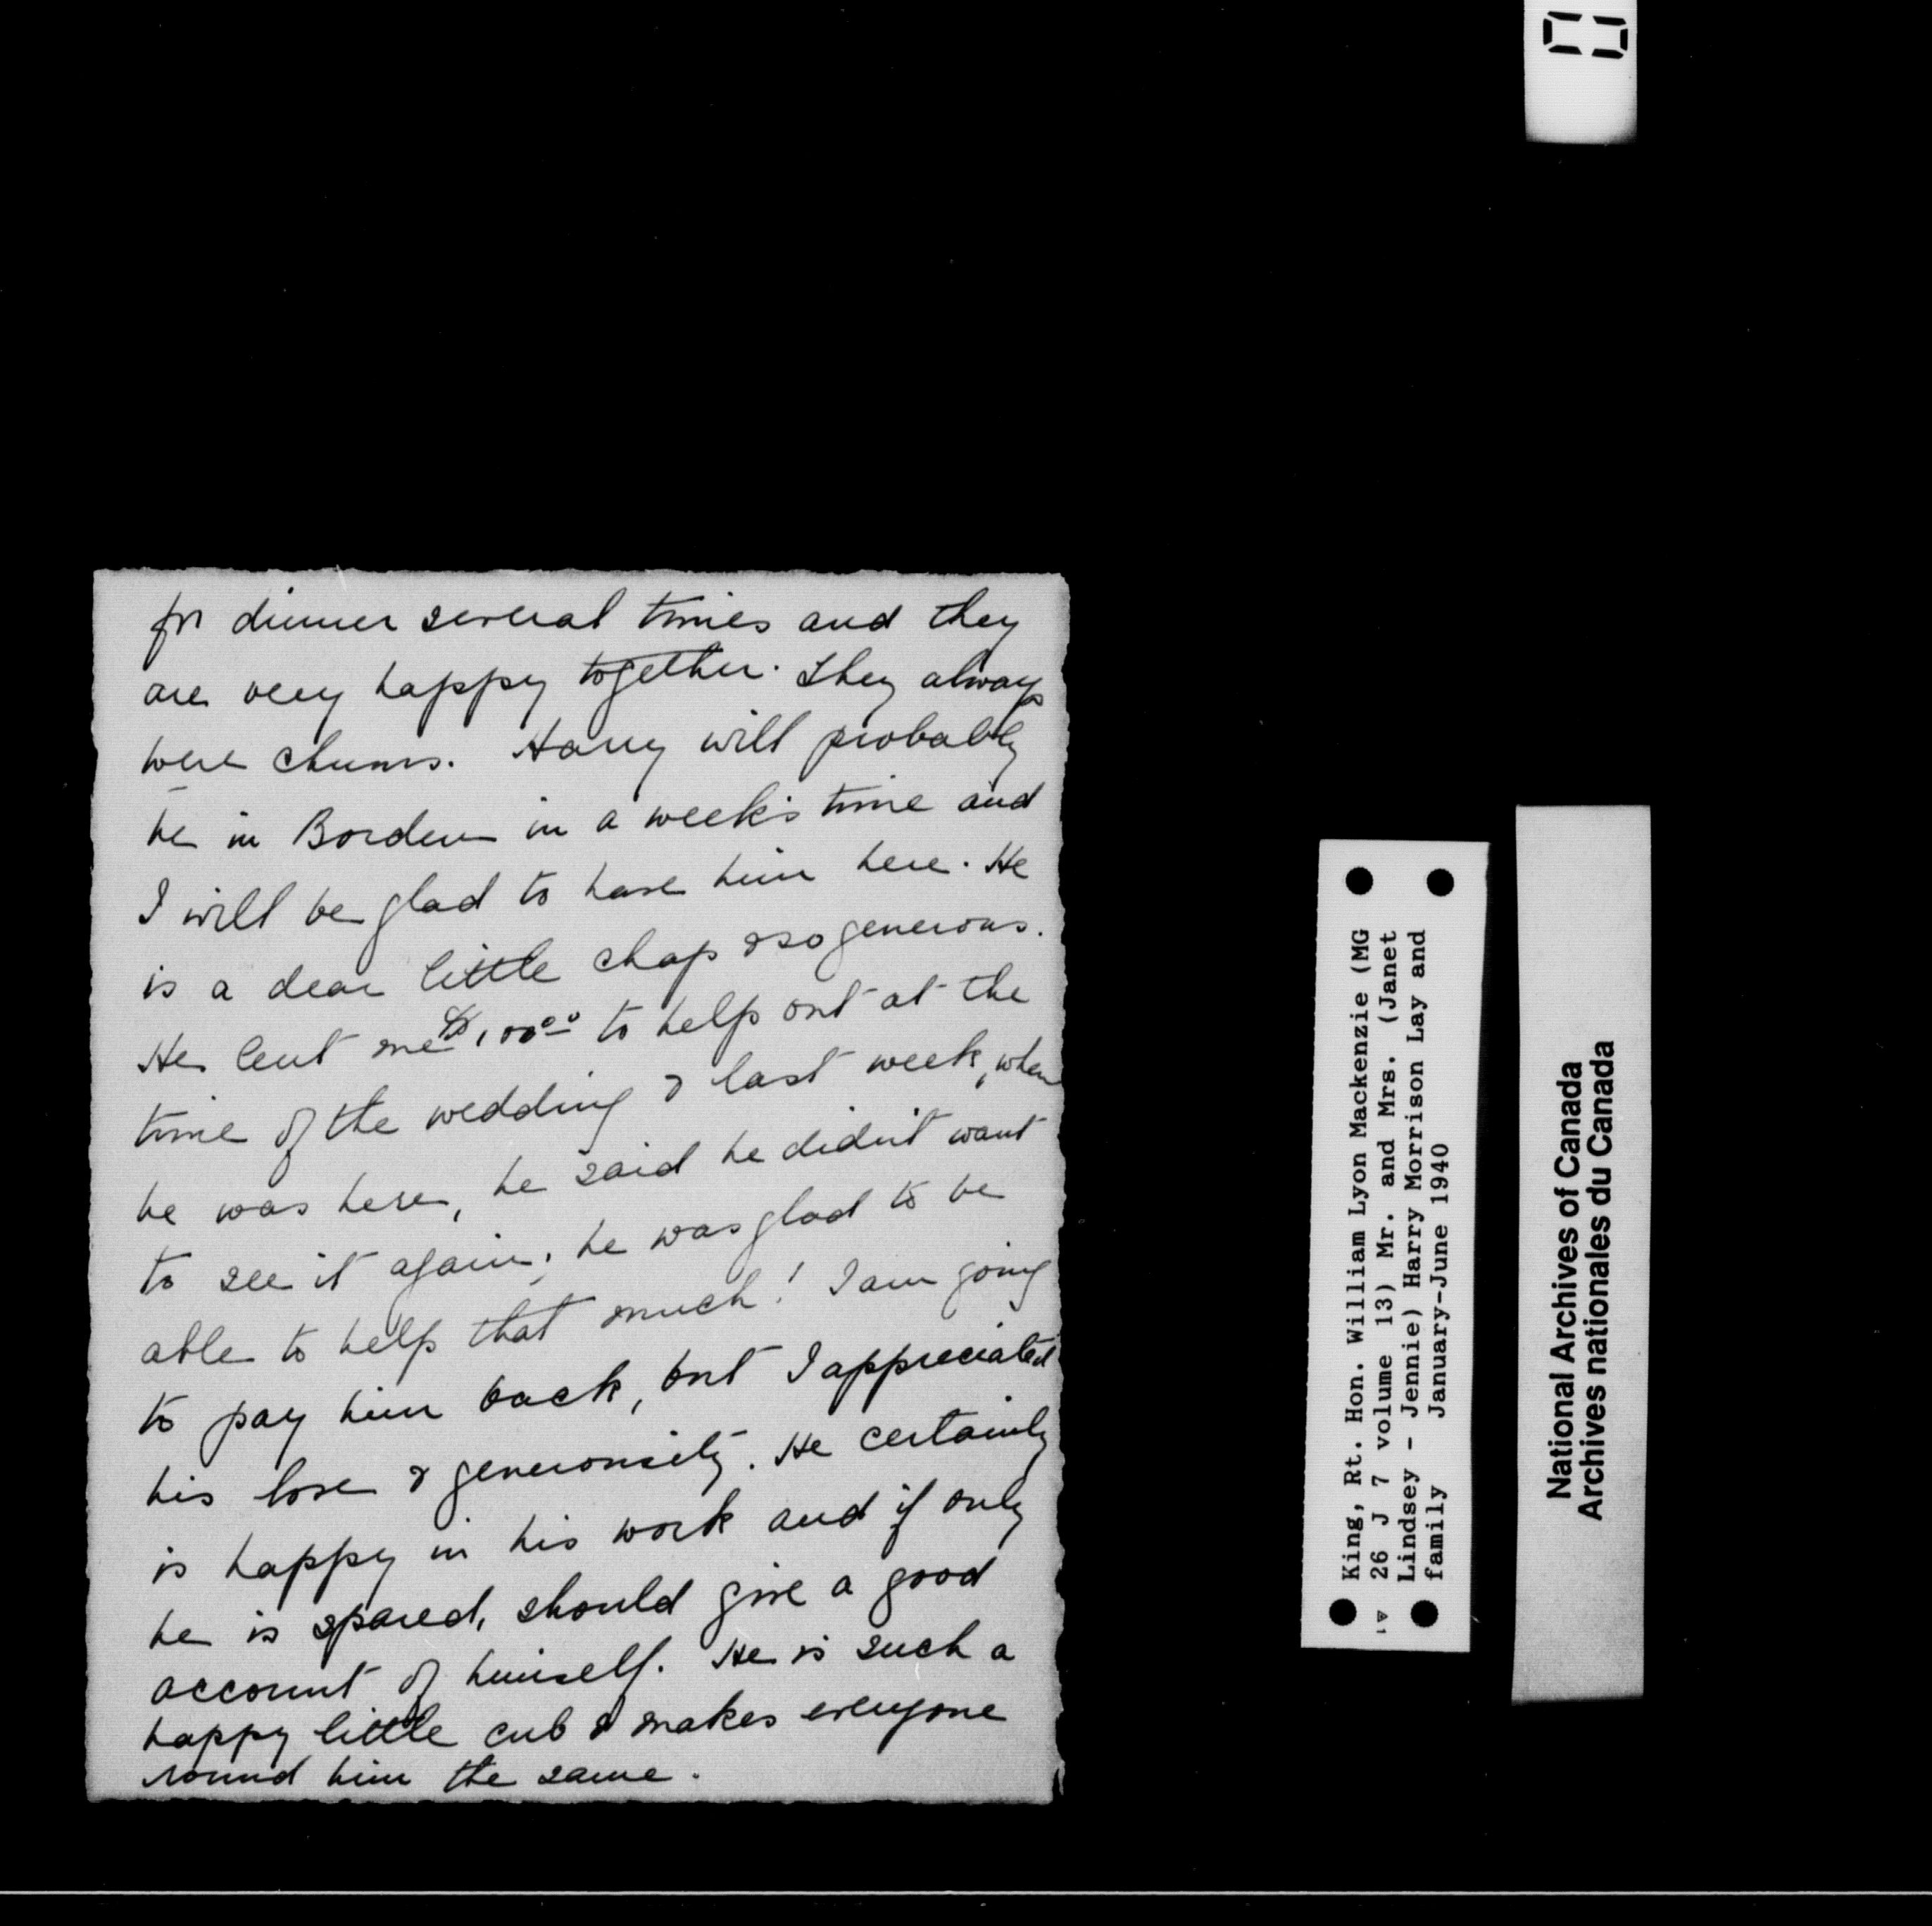 for dinner several times and they
are very happy together. They always
were chums. Harry will probably
be in Borden in a week's time and
I will be glad to have him here. He
is a dear little chap & so generous.
He lent me $100.00 to help out at the
time of the wedding & last week, when
he was here, he said he didn't want
to see it again; he was glad to be
able to help that much! I am going
to pay him back, but I appreciated
his love & generousity. He certainly
is happy in his work and if only
he is spared, should give a good
account of himself. He is such a
happy little cub & makes everyone
round him the same.
King, Rt. Hon. William Lyon Mackenzie (MG
26 J 7 volume 13) Mr. and Mrs. (Janet
Lindsey - Jennie) Harry Morrison Lay and
family January-June 1940
National Archives of Canada
Archives nationales du Canada